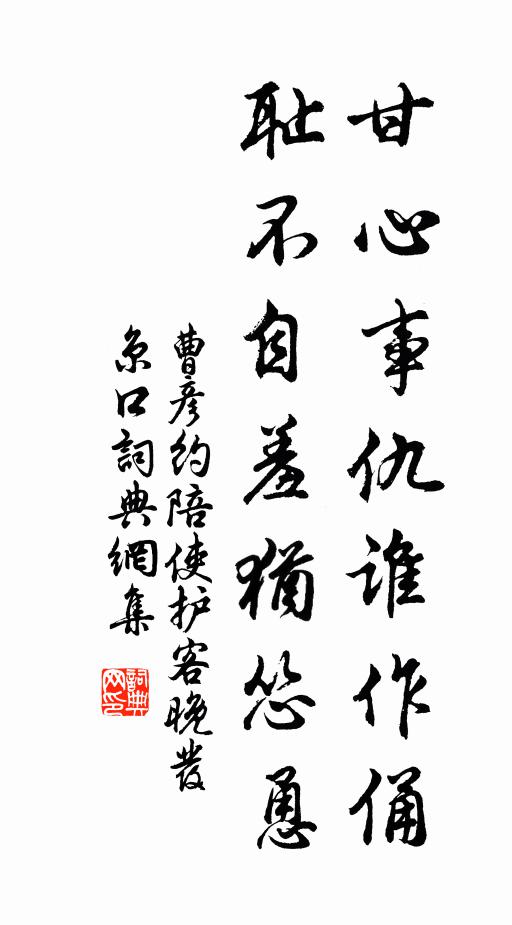 甘心事仇谁作俑
耻不自羞犹怂恿
曹彦约陪使护客晚發
京口詞典網集
詞典网印